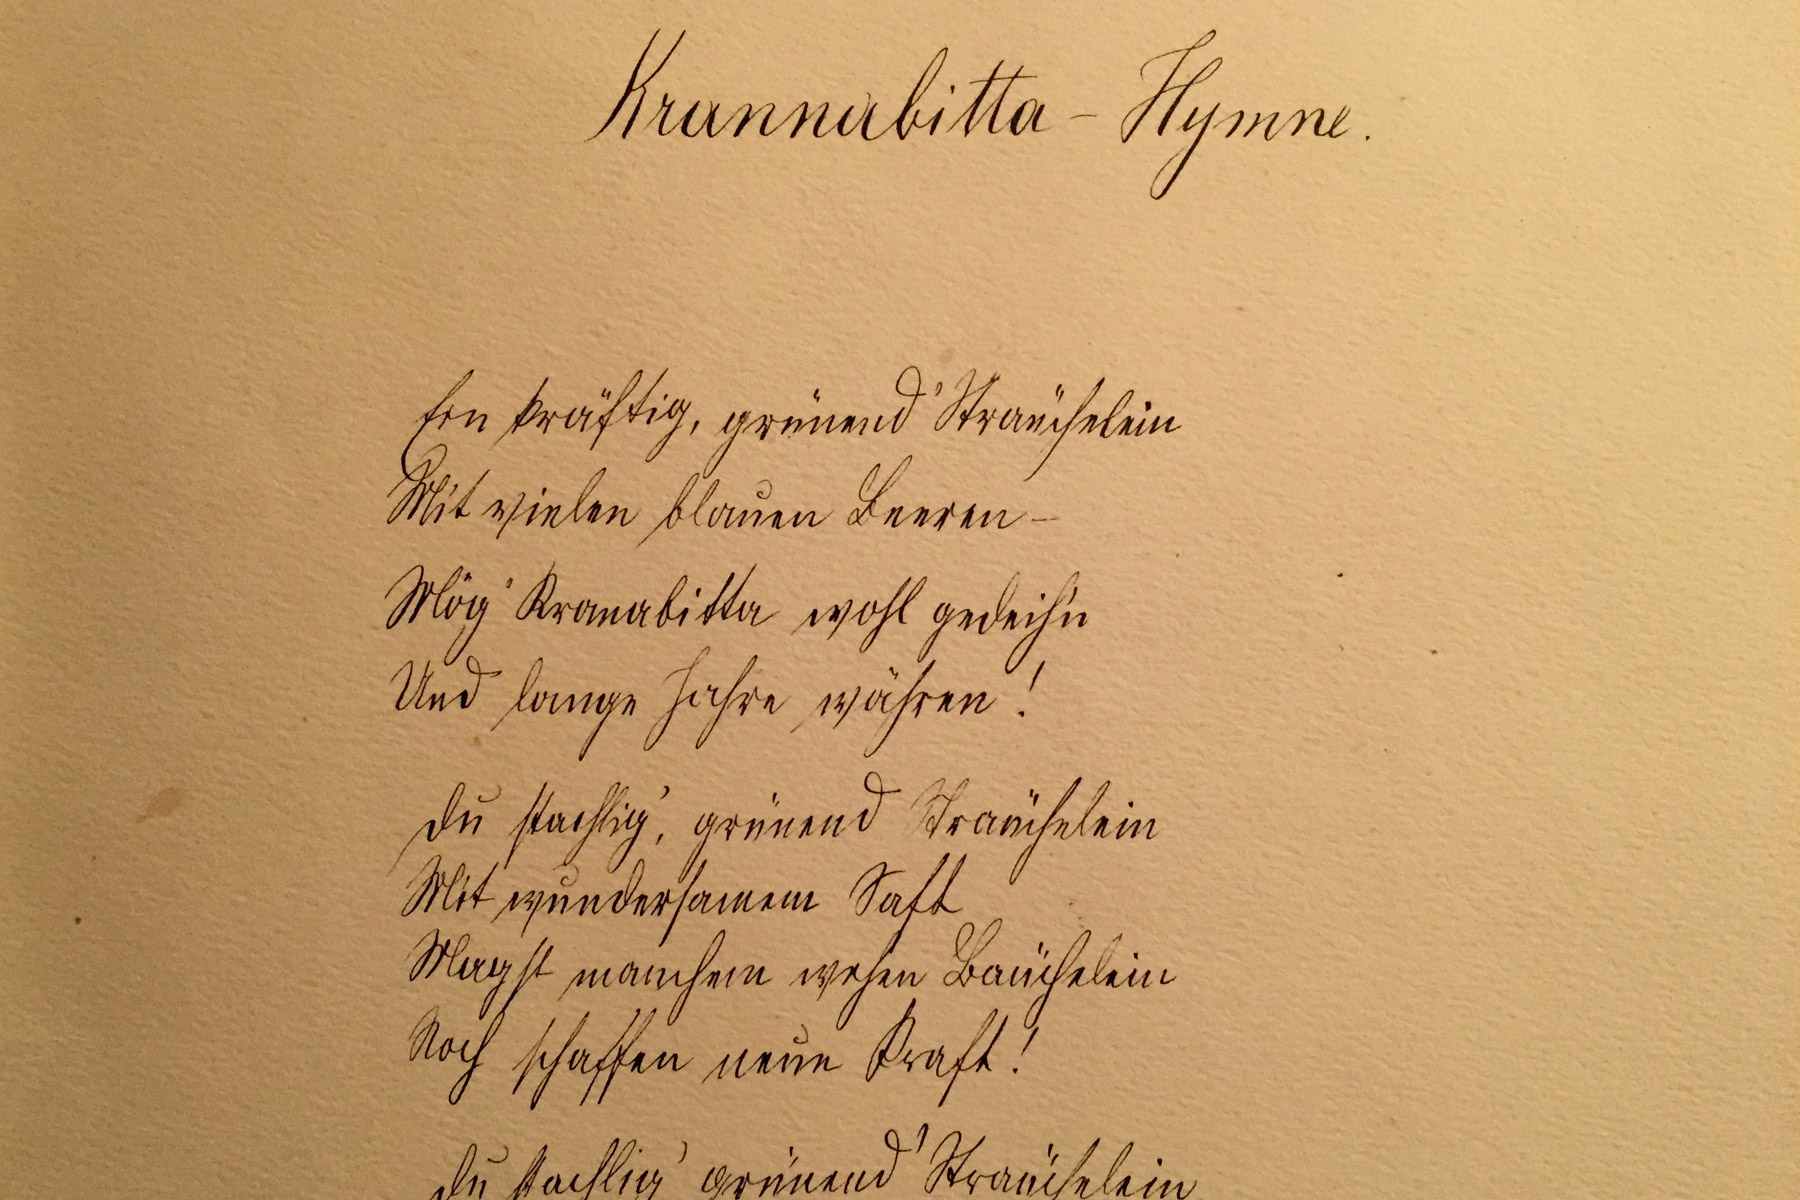 Krannabitta – Hymne.
Ein kräftig, grünend' Sträuchelein
Mit vielen blauen Beeren –
Mög' Kranabitta wohl gedeih'n
Und lange Jahre währen!
Du stachlig', grünend Sträuchelein
Mit wundersamem Saft
Magst manchem wehen Bäuchelein
Noch schaffen neue Kraft!
Du stachlig' grünend' Sträuchelein